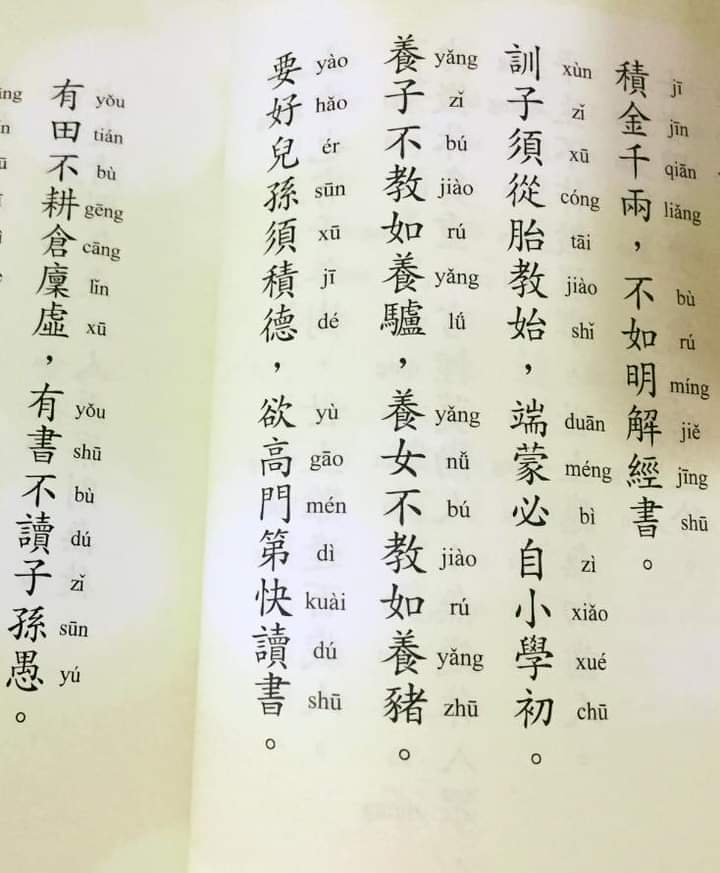 積金千兩，不如明解經書。
jī jīn qiān liǎng bù rú míng jiě jīng shū
訓子須從胎教始，端蒙必自小學初。
xùn zǐ xū cóng tāi jiào shǐ duān méng bì zì xiǎo xué chū
養子不教如養驢，養女不教如養豬。
yǎng zǐ bú jiào rú yǎng lǘ yǎng nǚ bú jiào rú yǎng zhū
要好兒孫須積德，欲高門第快讀書。
yào hǎo ér sūn xū jī dé yù gāo mén dì kuài dú shū
有田不耕倉廩虛，有書不讀子孫愚。
yǒu tián bù gēng cāng lǐn xū yǒu shū bù dú zǐ sūn yú